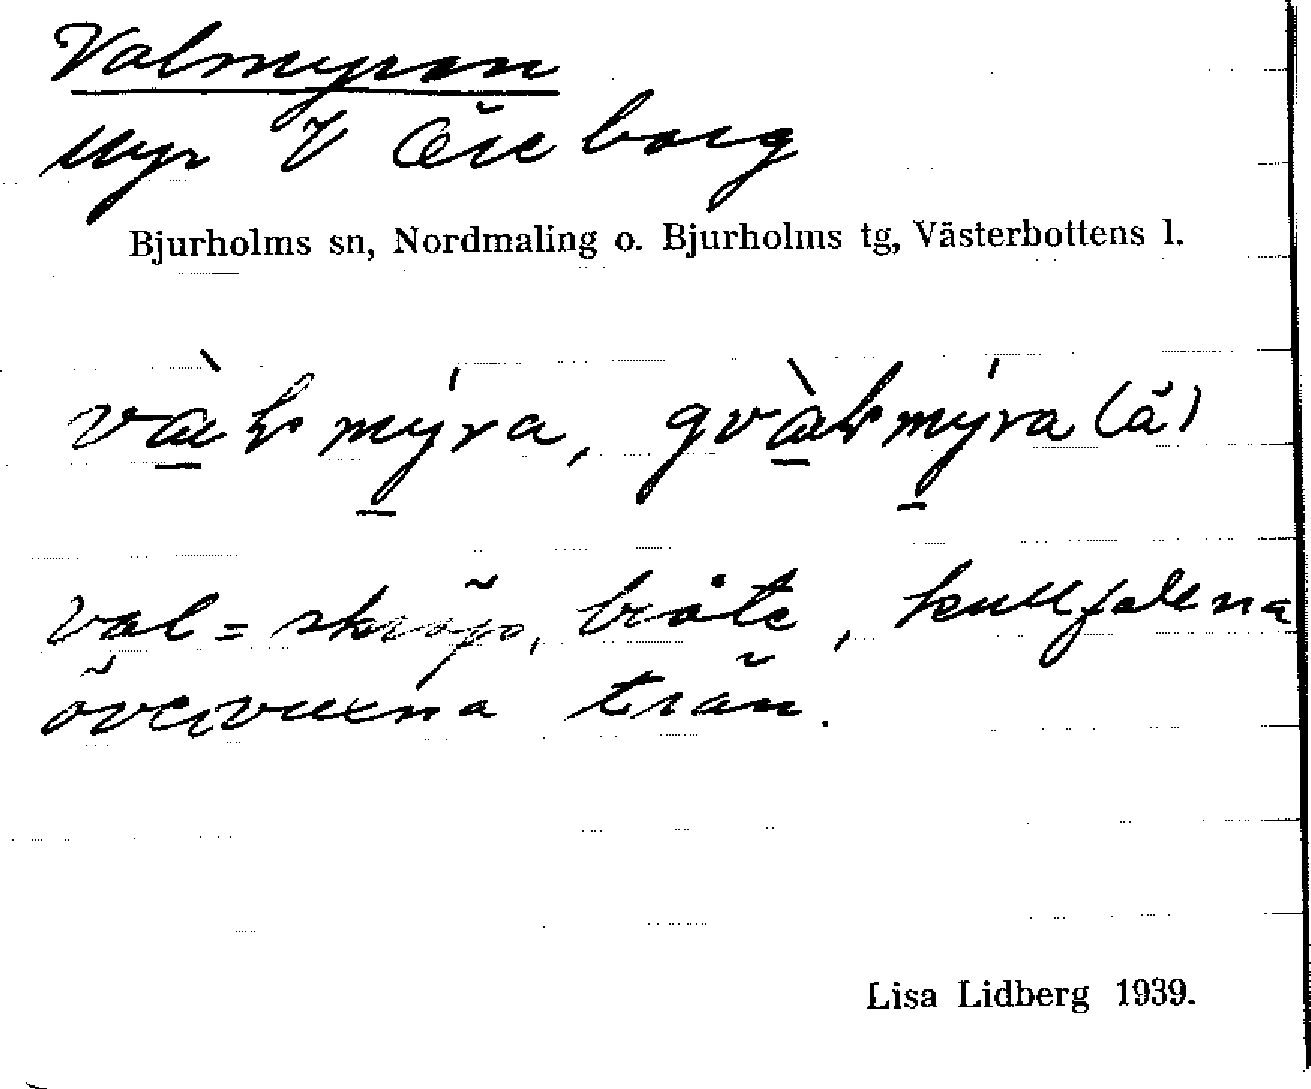 Valmyran
Myr V Öreborg
Bjurholms sn, Nordmaling o. Bjurholms tg, Västerbottens l.
val = skräp, bråte, kullfallna
övervuxna trän.
Lisa Lidberg 1939.